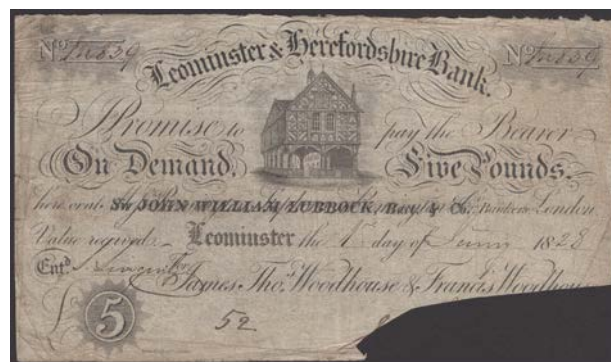 No No
Leominster & Herefordshire Bank.
Promise to pay the Bearer
On Demand, Five Pounds.
here or at Sir JOHN WILLIAM LUBBOCK, Bart. & Co. Bankers London
Value received Leominster the 1st day of 1828
Entd. For James Thos. Woodhouse & Francis Woodhouse
£5
52